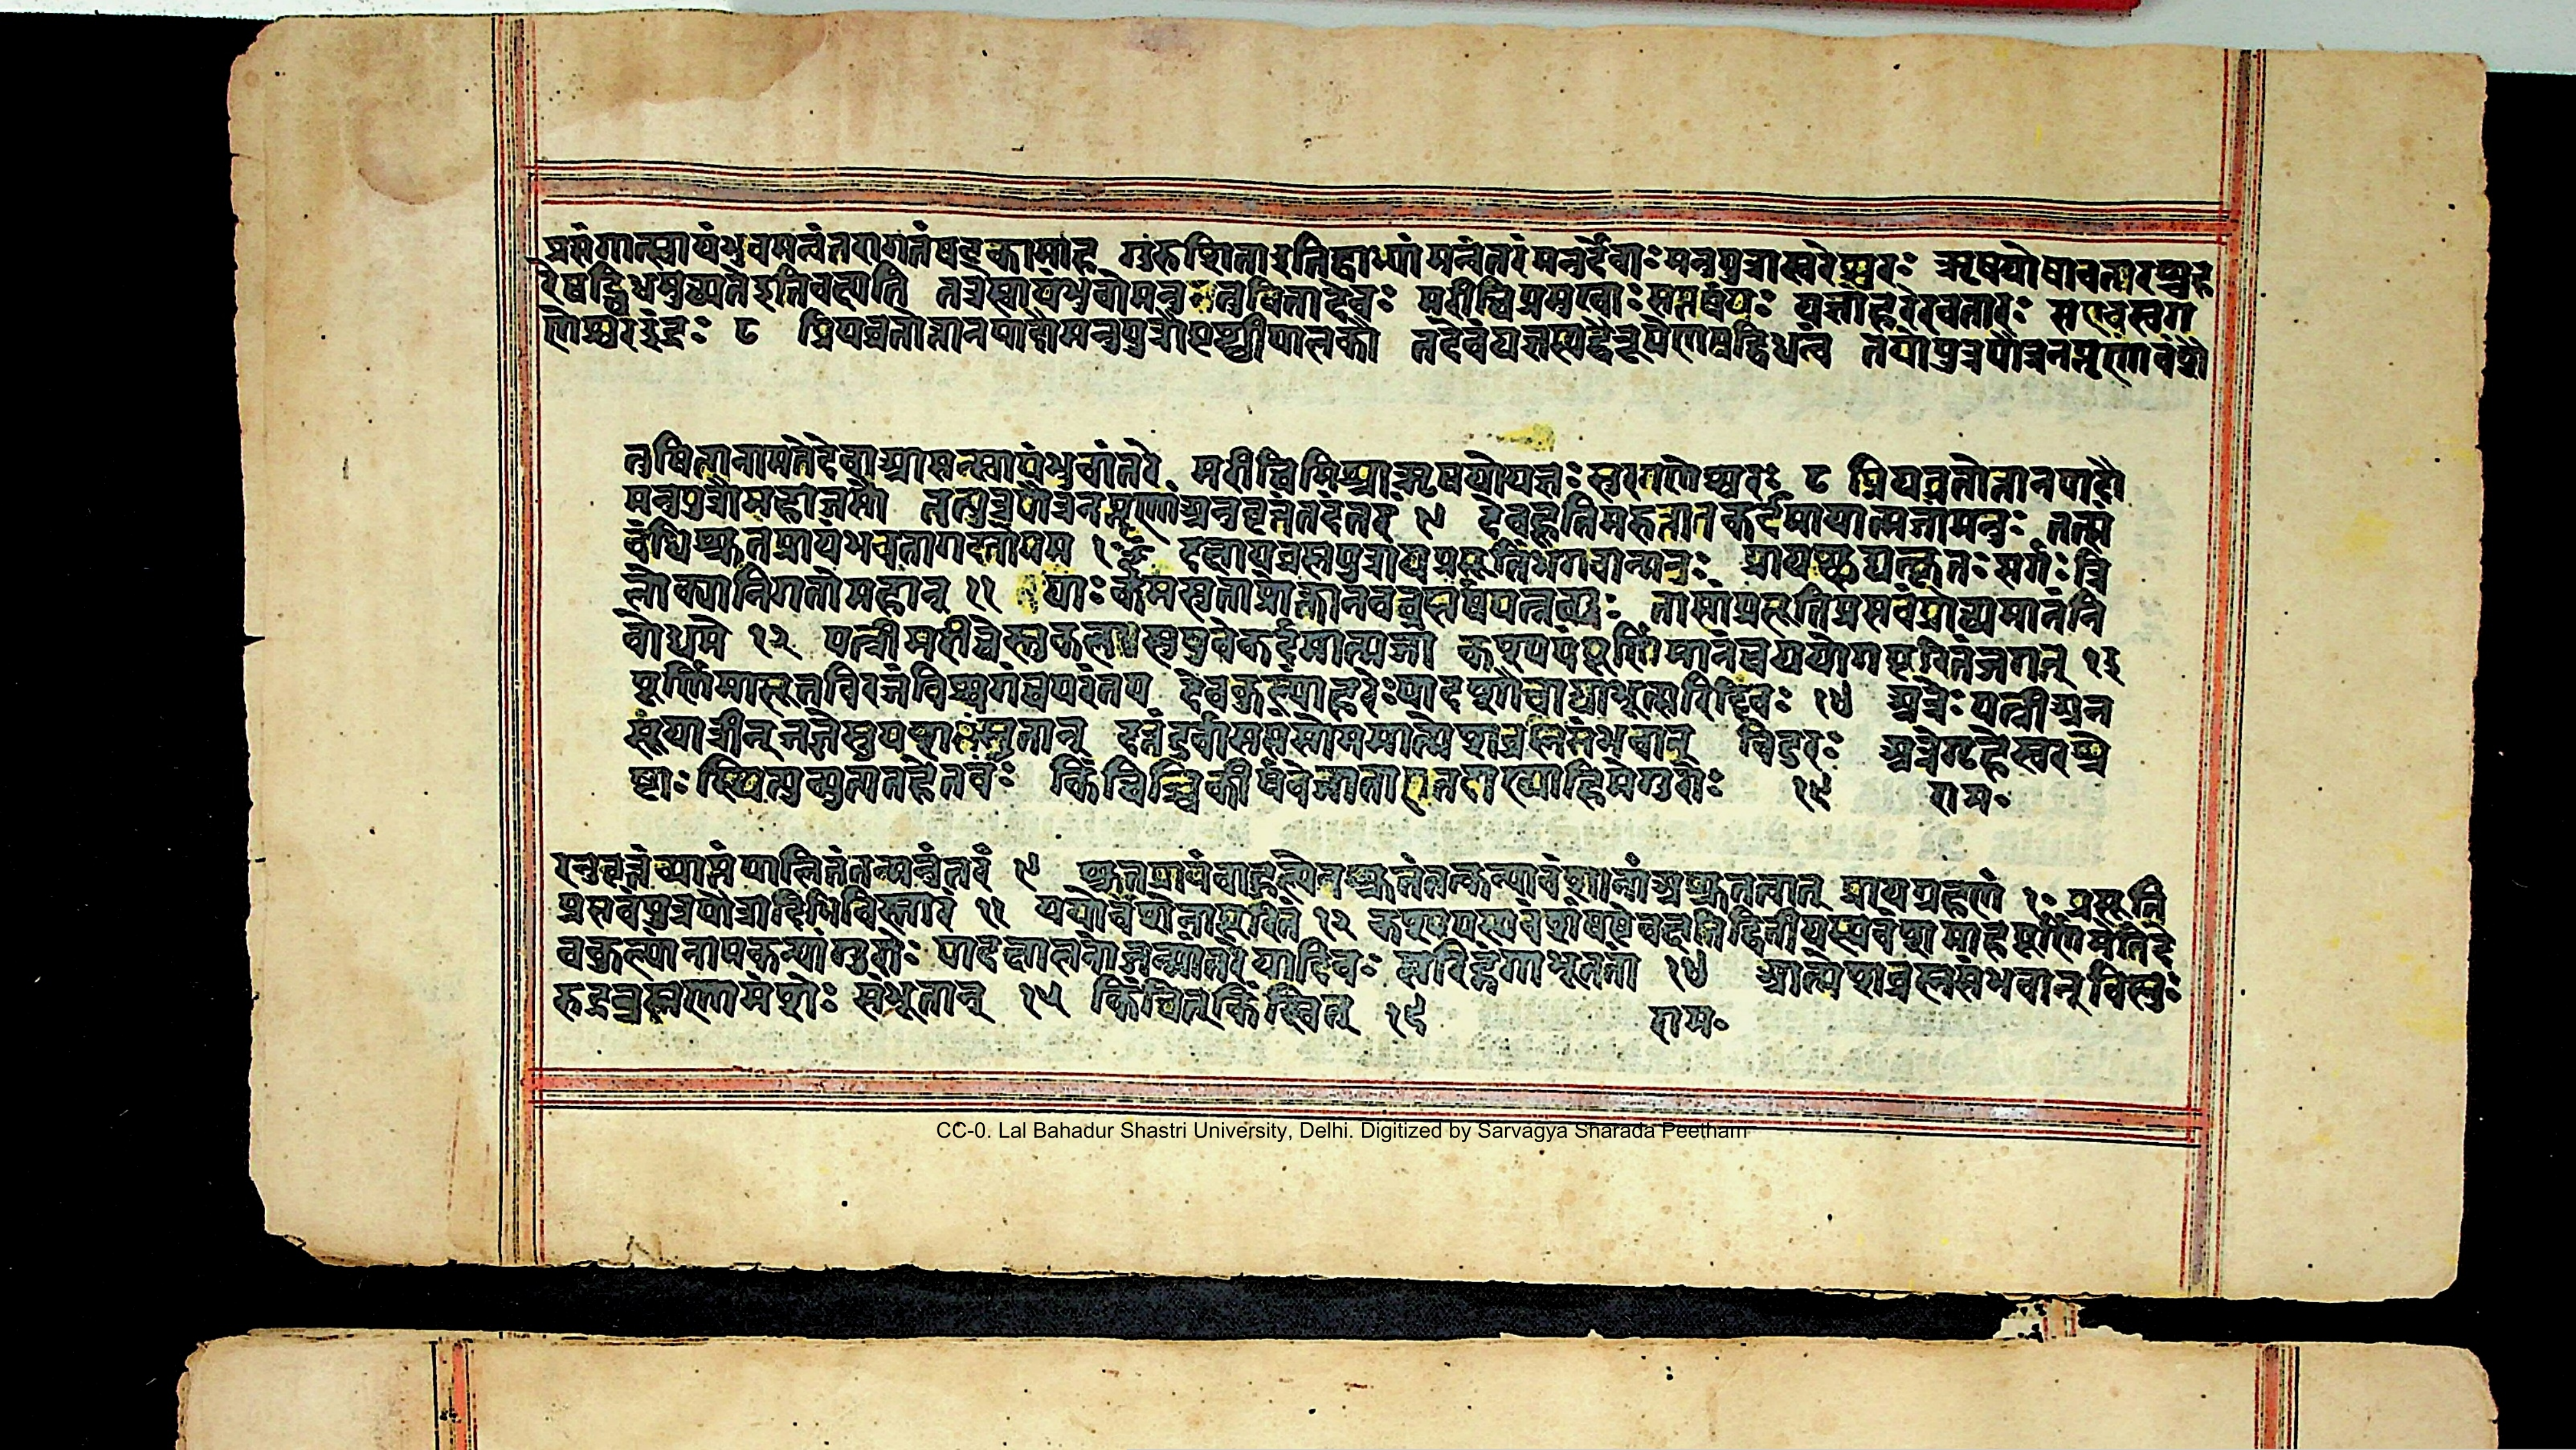 प्रसंगात्स्वायंभुवमन्वंतरगतंषट्कमाह तुषिताइतिद्वाभ्यां मन्वंतरंमनुर्देवाःमनुपुत्रास्सुरेश्वरः ऋषयोंशावतारश्चह
रेषड्विधमुच्यतेइतिवक्ष्यति तत्रस्वायंभुवोमनुः तुषितादेवाः मरीचिप्रमुखाःसप्तर्षयः यज्ञोहरेरवतारः सएवसुरग
णेश्वरइंद्रः ८ प्रियव्रतोत्तानपादौमनुपुत्रौपृथ्वीपालकौ तदेवंयज्ञस्यद्वैरूप्येणषड्विधत्वं तयोःपुत्रपौत्रनप्तॄणांवंशै
तुषितानामतेदेवाआसन्स्वायंभुवांतरे मरीचिमिश्राऋषयोयज्ञःसुरगणेश्वरः ८ प्रियव्रतोत्तानपादौ
मनुपुत्रौमहौजसौ तत्पुत्रपौत्रनप्तॄणांअनुवृत्तंतदंतरं ९ देवहूतिमदात्तातकर्दमायात्मजांमनुः तत्सं
बंधिश्रुतप्रायंभवतागदतोमम १॰ दक्षायब्रह्मपुत्रायप्रसूतिंभगवान्मनुः प्रायच्छद्यत्कृतःसर्गःत्रि
लोक्यांविततोमहान् ११ याःकर्दमसुताःप्रोक्तानवब्रह्मर्षिपत्नयः तासांप्रसूतिप्रसवंप्रोच्यमानंनि
बोधमे १२ पत्नीमरीचेस्तुकलासुषुवेकर्दमात्मजा कश्यपंपूर्णिमानंचययोरापूरितंजगत् १३
पूर्णिमासूतविरजंविश्वगंचपरंतप देवकुल्यांहरेःपादशौचाद्याभूत्सरिद्दिवः १४ अत्रेःपत्नीअन
सूयात्रीन्जज्ञेसुयशसःसुतान् दत्तंदुर्वाससंसोममात्मेशब्रह्मसंभवान् विदुरः अत्रेर्गृहेसुरश्रे
ष्ठाःस्थित्युत्पत्यंतहेतवः किंचिच्चिकीर्षवोजाताएतदाख्याहिमेगुरोः १६ राम॰
रनुवृत्तंव्याप्तंपालितंतन्मन्वंतरं ९ श्रुतप्रायंबाहुल्येनश्रुतंतत्कन्यावंशानांअश्रुतत्वात् प्रायग्रहणं १॰ प्रसूति
प्रसवंपुत्रपौत्रादिभिर्विस्तारं ११ ययोर्वंशेनापूरितं १२ कश्यपस्यवंशंषष्ठेवक्ष्यतिद्वितीयस्यवंशमाहपूर्णिमेतिदे
वकुल्यांनामकन्यां हरेः पादक्षालनाज्जन्मांतरेयादिवः सरिद्गंगाभूत्तां १४ आत्मेशब्रह्मसंभवान्विष्णु
रुद्रब्रह्मणामंशैः संभूतान् १५ किंचित्किंस्वित् १६ राम॰
CC-0. Lal Bahadur Shastri University, Delhi. Digitized by Sarvagya Sharada Peetham